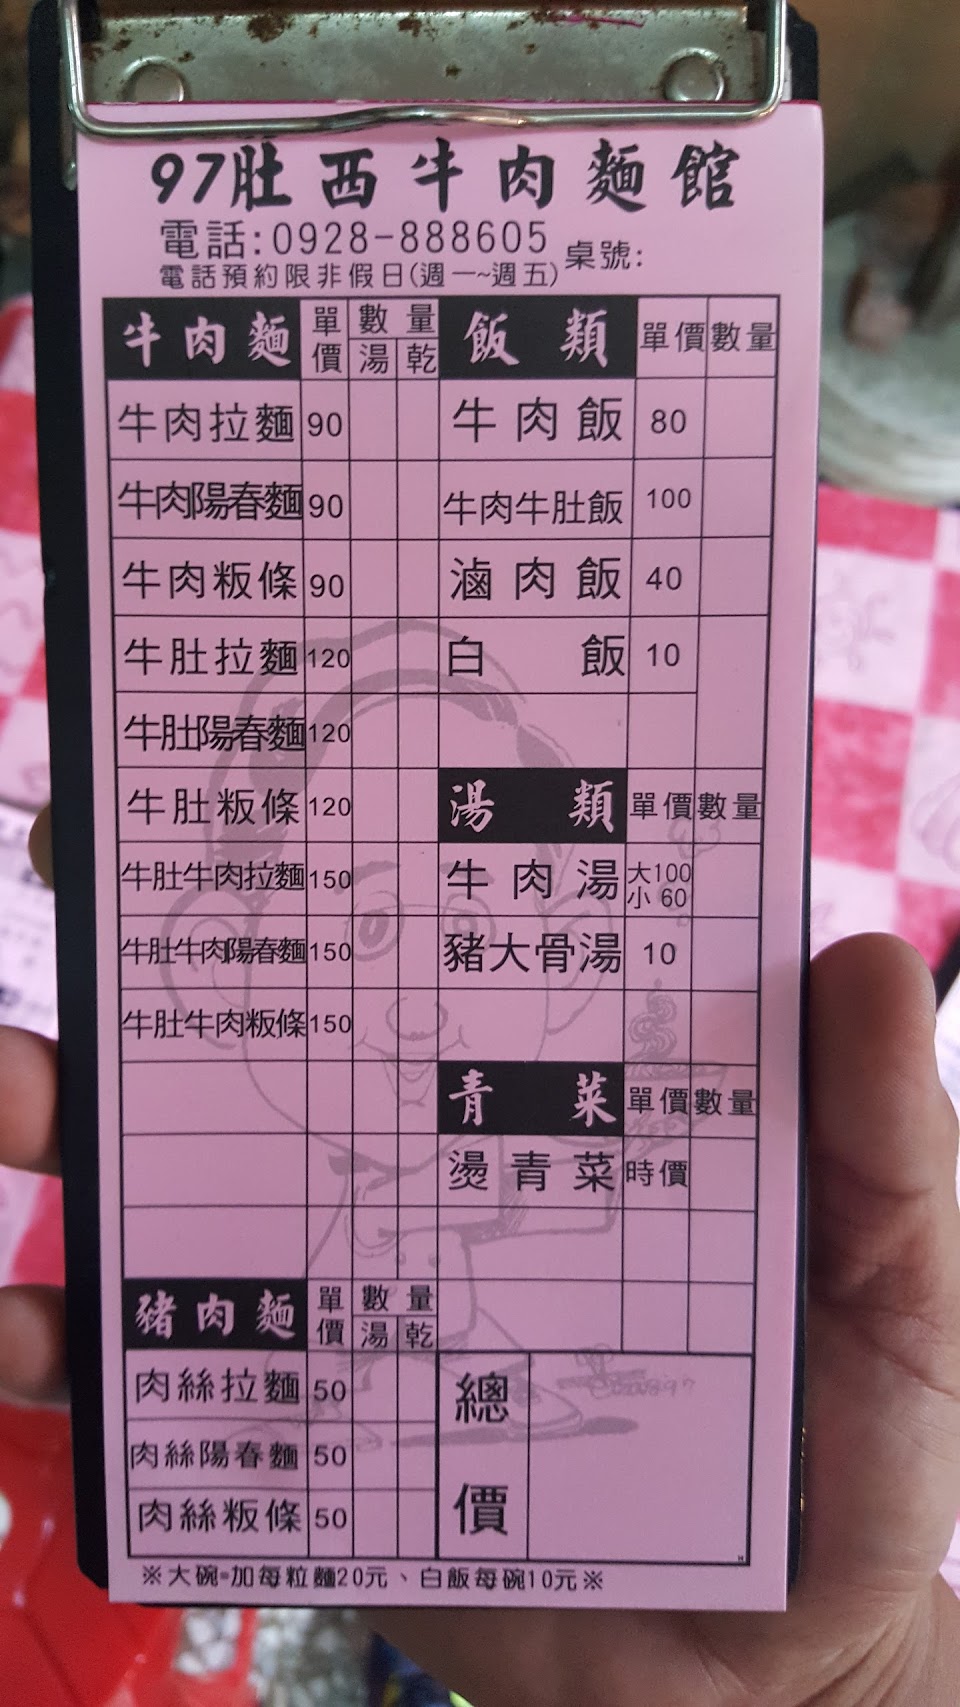 97肚西牛肉麵館
電話:0928-888605
電話預約限非假日(週一~週五)
桌號:
牛肉麵 單價 數量 湯 乾
牛肉拉麵 90
牛肉陽春麵 90
牛肉粄條 90
牛肚拉麵 120
牛肚陽春麵 120
牛肚粄條 120
牛肚牛肉拉麵 150
牛肚牛肉陽春麵 150
牛肚牛肉粄條 150
豬肉麵 單價 數量 湯 乾
肉絲拉麵 50
肉絲陽春麵 50
肉絲粄條 50
飯類 單價 數量
牛肉飯 80
牛肉牛肚飯 100
滷肉飯 40
白飯 10
湯類 單價 數量
牛肉湯 大100
小 60
豬大骨湯 10
青菜 單價 數量
燙青菜 時價
總價
※大碗=加每粒麵20元、白飯每碗10元※